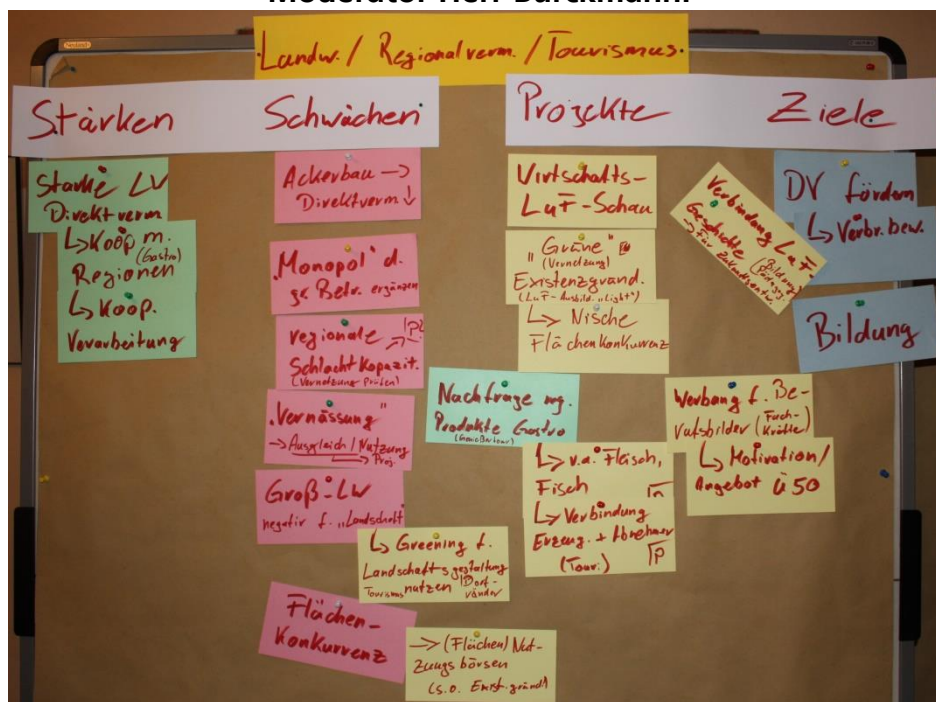 Moderator Herr Barckmann:
Landw. / Regionalverm. / Tourismus.
Stärken
Schwächen
Projekte
Ziele
Starke LV
Direktverm
↳ Koop m.
(Gastro)
Regionen
↳ Koop.
Verarbeitung
Ackerbau →
Direktverm ↓
"Monopol" d.
gr. Betr. ergänzen
regionale → P
Schlachtkapazit.
(Vernetzung Prüfen)
"Vernässung"
→ Ausgleich / Nutzung
→ Proj.
Groß-LW
negativ f. "Landschaft"
↳ Greening f.
Landschaftsgestaltung
Tourismus nutzen / Dorf-
ränder
Flächen-
Konkurrenz
→ (Flächen) Nut-
zungsbörsen
(s.o. Exist.gründ)
Virtschafts-
LuF-Schau
"Grüne"
(Vernetzung)
Existenzgründ.
(LuF-Ausbild. "Light")
↳ Nische
Flächenkonkurrenz
Nachfrage rg.
Produkte Gastro
↳ v.a. Fleisch,
Fisch
↳ Verbindung
Erzeug. + Abnehmer
(Tour.) P
Verbindung LuF-
Geschichte
(Bildung/
Pädag.)
→ Für Zukunftsentw.
DV fördern
↳ Verbr. bew.
Bildung
Werbung f. Be-
rufsbilder (Fach-
kräfte)
↳ Motivation /
Angebot Ü50